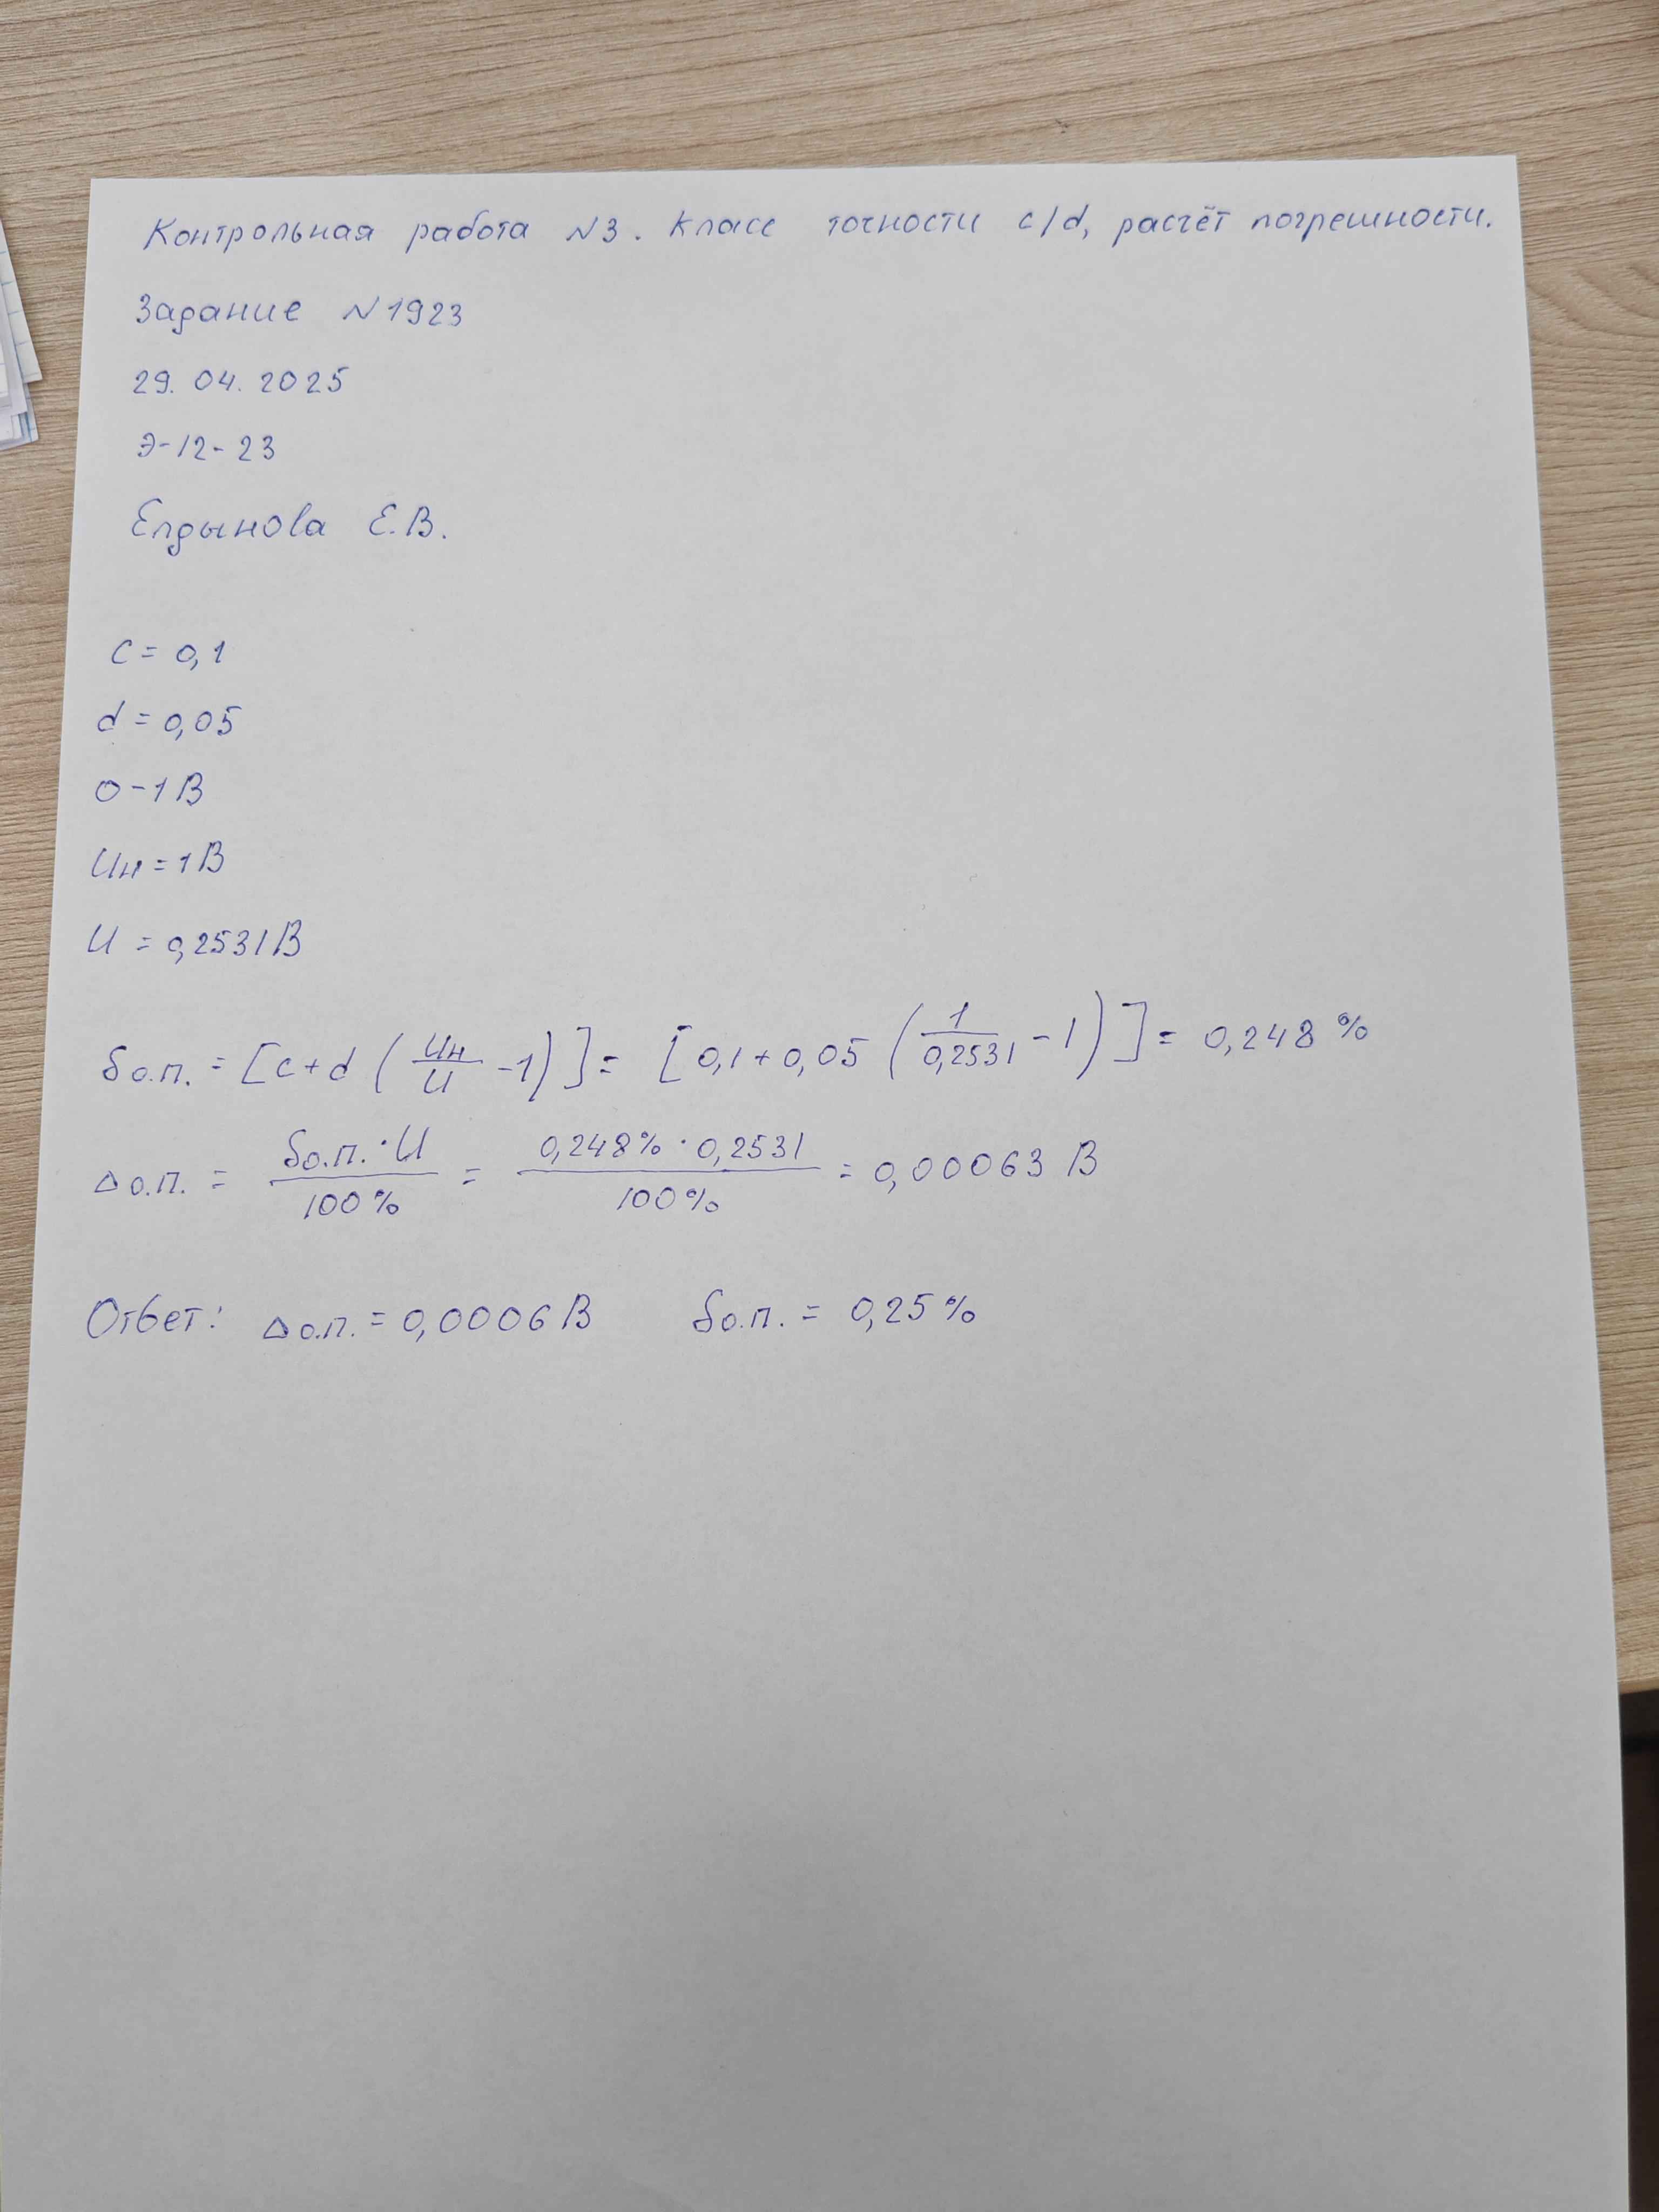 Контрольная работа N3. Класс точности c/d, расчёт погрешности.
Задание N1923
29.04.2025
Э-12-23
Елдынова Е.В.
c = 0,1
d = 0,05
0-1В
Uн = 1В
U = 0,2531В
δо.п. = [c+d(Uн/U -1)] = [0,1+0,05(1/0,2531 -1)] = 0,248 %
Δо.п. = δо.п.·U/100% = 0,248%·0,2531/100% = 0,00063 В
Ответ: Δо.п. = 0,0006В δо.п. = 0,25%